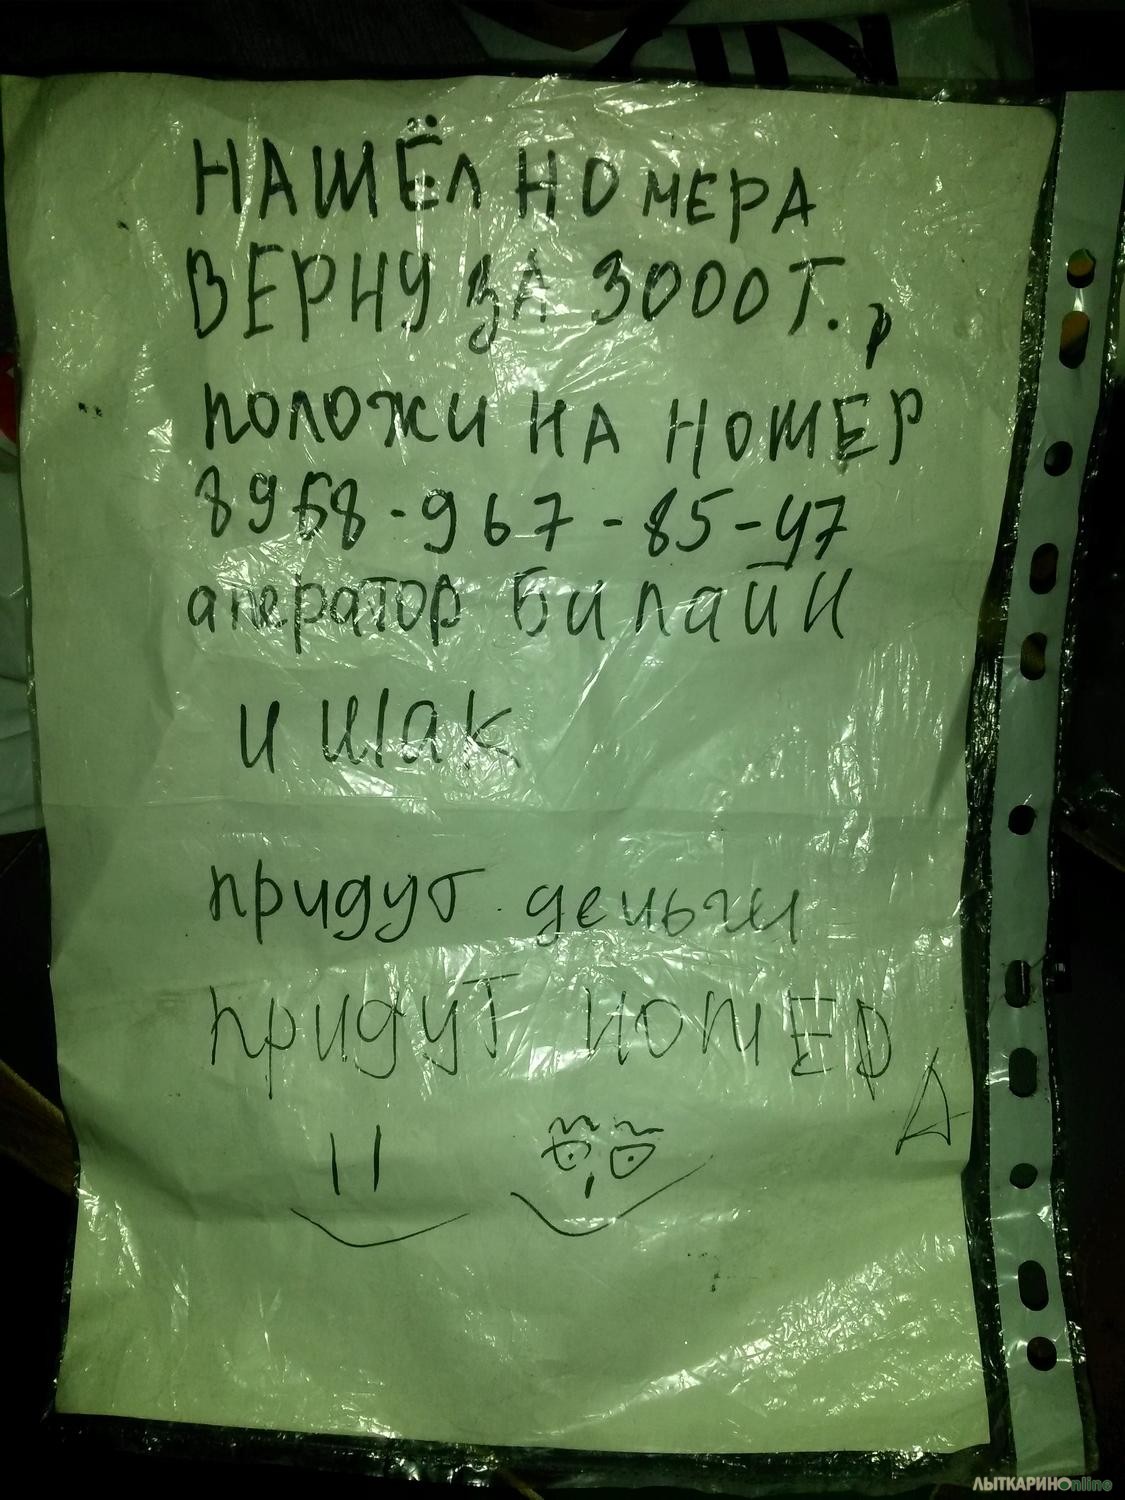 НАШЁЛ НОМЕРА
ВЕРНУ ЗА 3000Т.р
положи НА НОМЕР
8968-967-85-47
аператор Билайн
и шак
придут деньги
придут НОМЕРА
ЛЫТКАРИНОonline